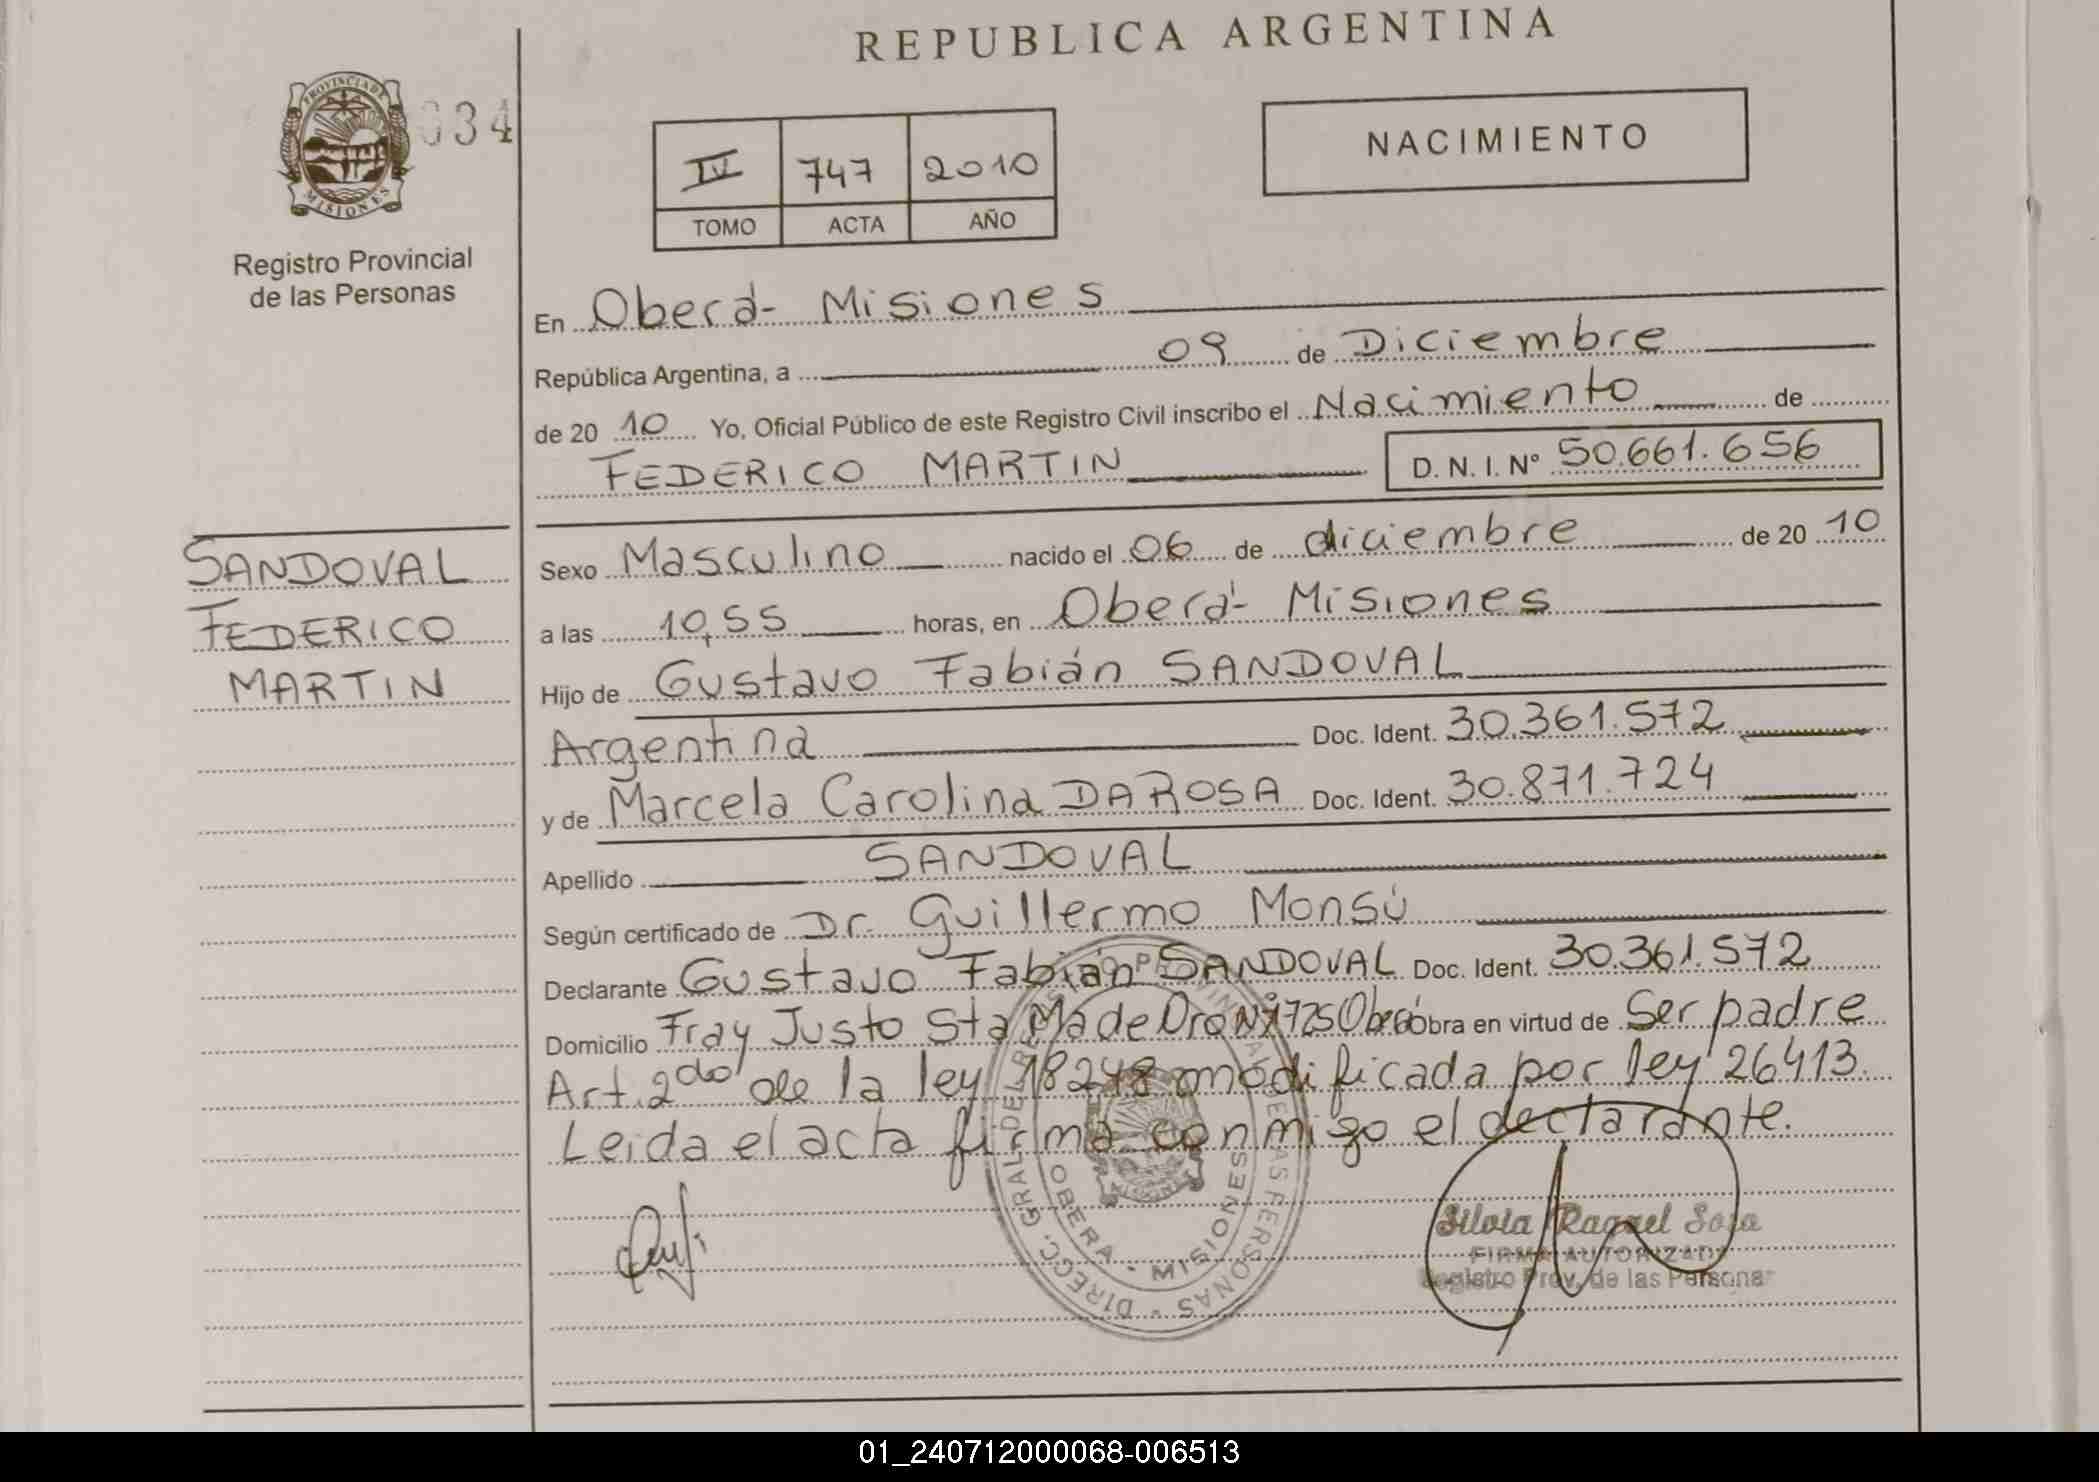 REPUBLICA ARGENTINA
PROVINCIA DE
MISIONES
034
Registro Provincial
de las Personas
NACIMIENTO
IV 747 2010
TOMO ACTA AÑO
En Oberá- Misiones
República Argentina, a 09 de Diciembre
de 20 10 Yo, Oficial Público de este Registro Civil inscribo el Nacimiento de
FEDERICO MARTIN D. N. I. N° 50.661.656
SANDOVAL
FEDERICO
MARTIN
Sexo Masculino nacido el 06 de diciembre de 20 10
a las 10,55 horas, en Oberá- Misiones
Hijo de Gustavo Fabián SANDOVAL
Argentina Doc. Ident. 30.361.572
y de Marcela Carolina DA ROSA Doc. Ident. 30.871.724
Apellido SANDOVAL
Según certificado de Dr. Guillermo Monsú
Declarante Gustavo Fabián SANDOVAL Doc. Ident. 30.361.572
Domicilio Fray Justo Sta Ma de Oro N° 1725 Oberá Obra en virtud de Ser padre
Art. 2do de la ley 18248 modificada por ley 26413.
Leida el acta firma conmigo el declarante.
DIRECC. GRAL. DEL REGISTRO PROVINCIAL DE LAS PERSONAS
OBERA - MISIONES
Silvia Raquel Sosa
FIRMA AUTORIZADA
Registro Prov. de las Personas
01_240712000068-006513